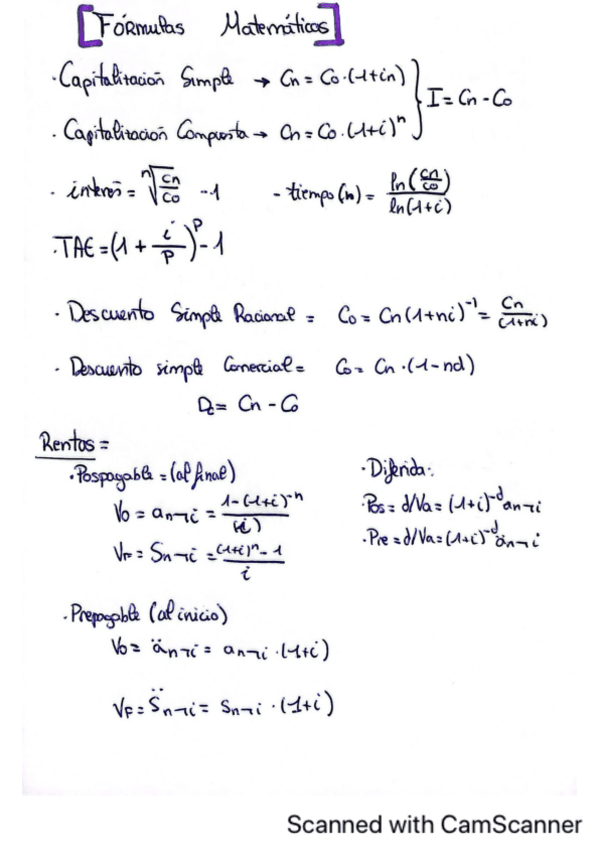 [Fórmulas Matemáticas]
· Capitalización Simple → Cn = Co·(1+in)
· Capitalización Compuesta → Cn = Co·(1+i)^n } I = Cn - Co
· interés = ⁿ√(Cn/Co) - 1 - tiempo (n) = ln(Cn/Co) / ln(1+i)
· TAE = (1 + i/P)^P - 1
· Descuento Simple Racional = Co = Cn(1+ni)^-1 = Cn/(1+ni)
· Descuento simple Comercial = Co = Cn·(1-nd)
Dc = Cn - Co
Rentas =
· Pospagable = (al final)
Vo = an¬i = 1-(1+i)^-n / (i)
VF = Sn¬i = (1+i)^n - 1 / i
· Diferida:
· Pos = d/Va = (1+i)^-d an¬i
· Pre = d/Va = (1+i)^-d än¬i
· Prepagable (al inicio)
Vo = än¬i = an¬i·(1+i)
VF = S̈n¬i = Sn¬i·(1+i)
Scanned with CamScanner